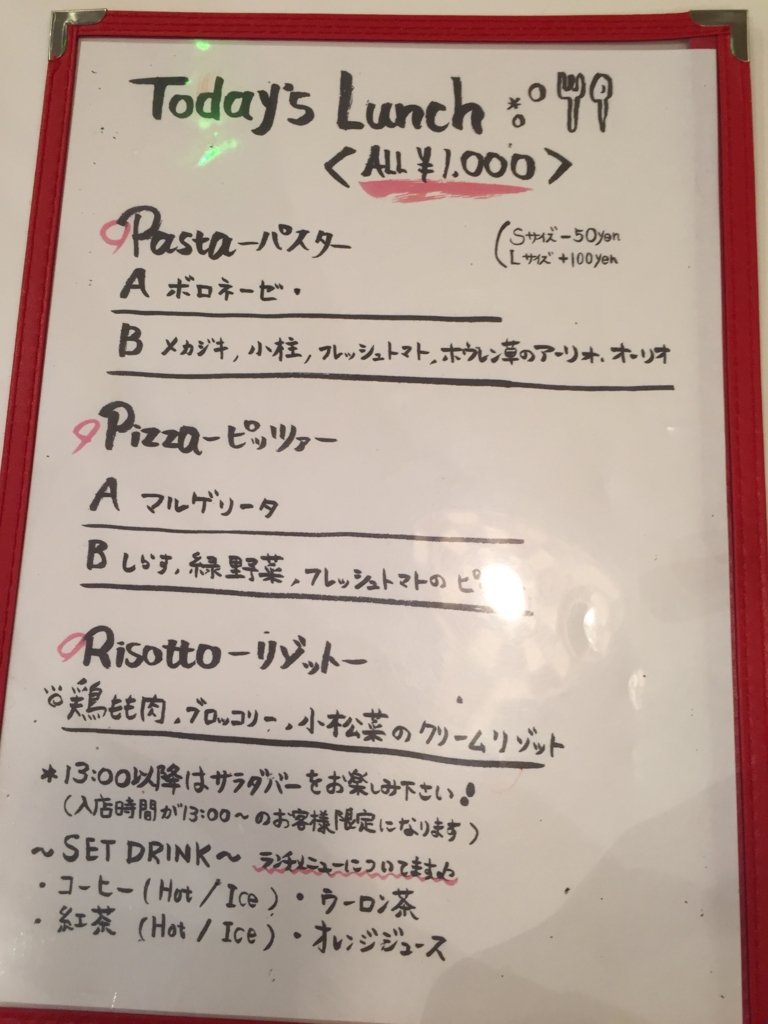 Today's Lunch
<ALL ¥1.000>
Pasta-パスター
(Sサイズ-50yen
Lサイズ+100yen
A ボロネーゼ・
B メカジキ,小柱,フレッシュトマト,ホウレン草のアーリオ.オーリオ
Pizza-ピッツァー
A マルゲリータ
B しらす,緑野菜,フレッシュトマトの
Risotto-リゾットー
◎鶏もも肉,ブロッコリー,小松菜のクリームリゾット
*13:00以降はサラダバーをお楽しみ下さい!
(入店時間が13:00~のお客様限定になります)
~SET DRINK~ ランチメニューについてます♪
・コーヒー(Hot/Ice)・ウーロン茶
・紅茶(Hot/Ice)・オレンジジュース